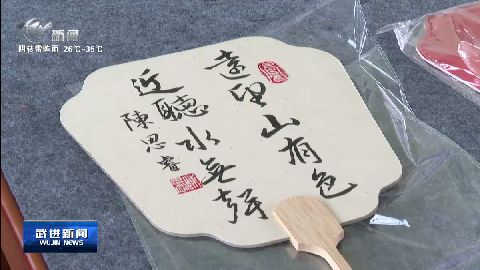 新闻
阴转雷阵雨 26℃~35℃
遠望山有色
近聽水無聲
陳思睿
武进新闻
WUJIN NEWS